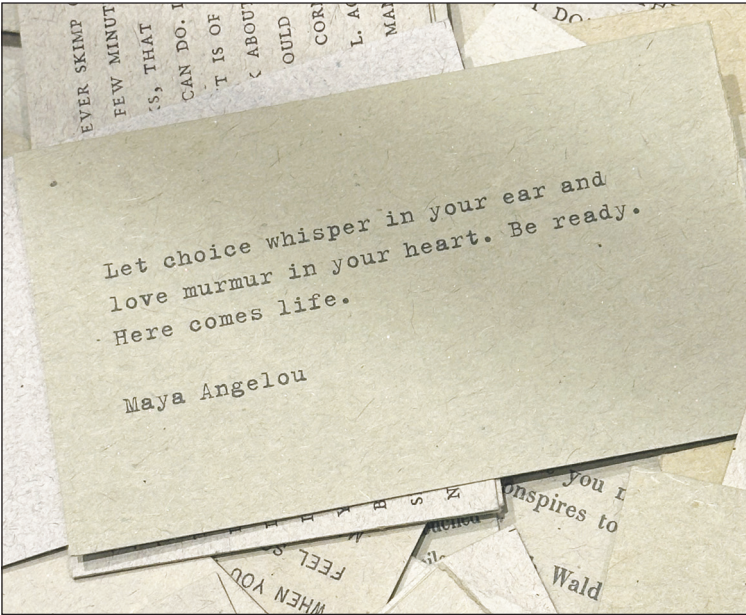 EVER SKIMP
FEW MINUT
S, THAT
CAN DO.
T IS OF
ABOUT
OULD
COR
L.
MAN
DO
Let choice whisper in your ear and
love murmur in your heart. Be ready.
Here comes life.
Maya Angelou
you
onspires to
Wald
FEEL
WHEN YOU